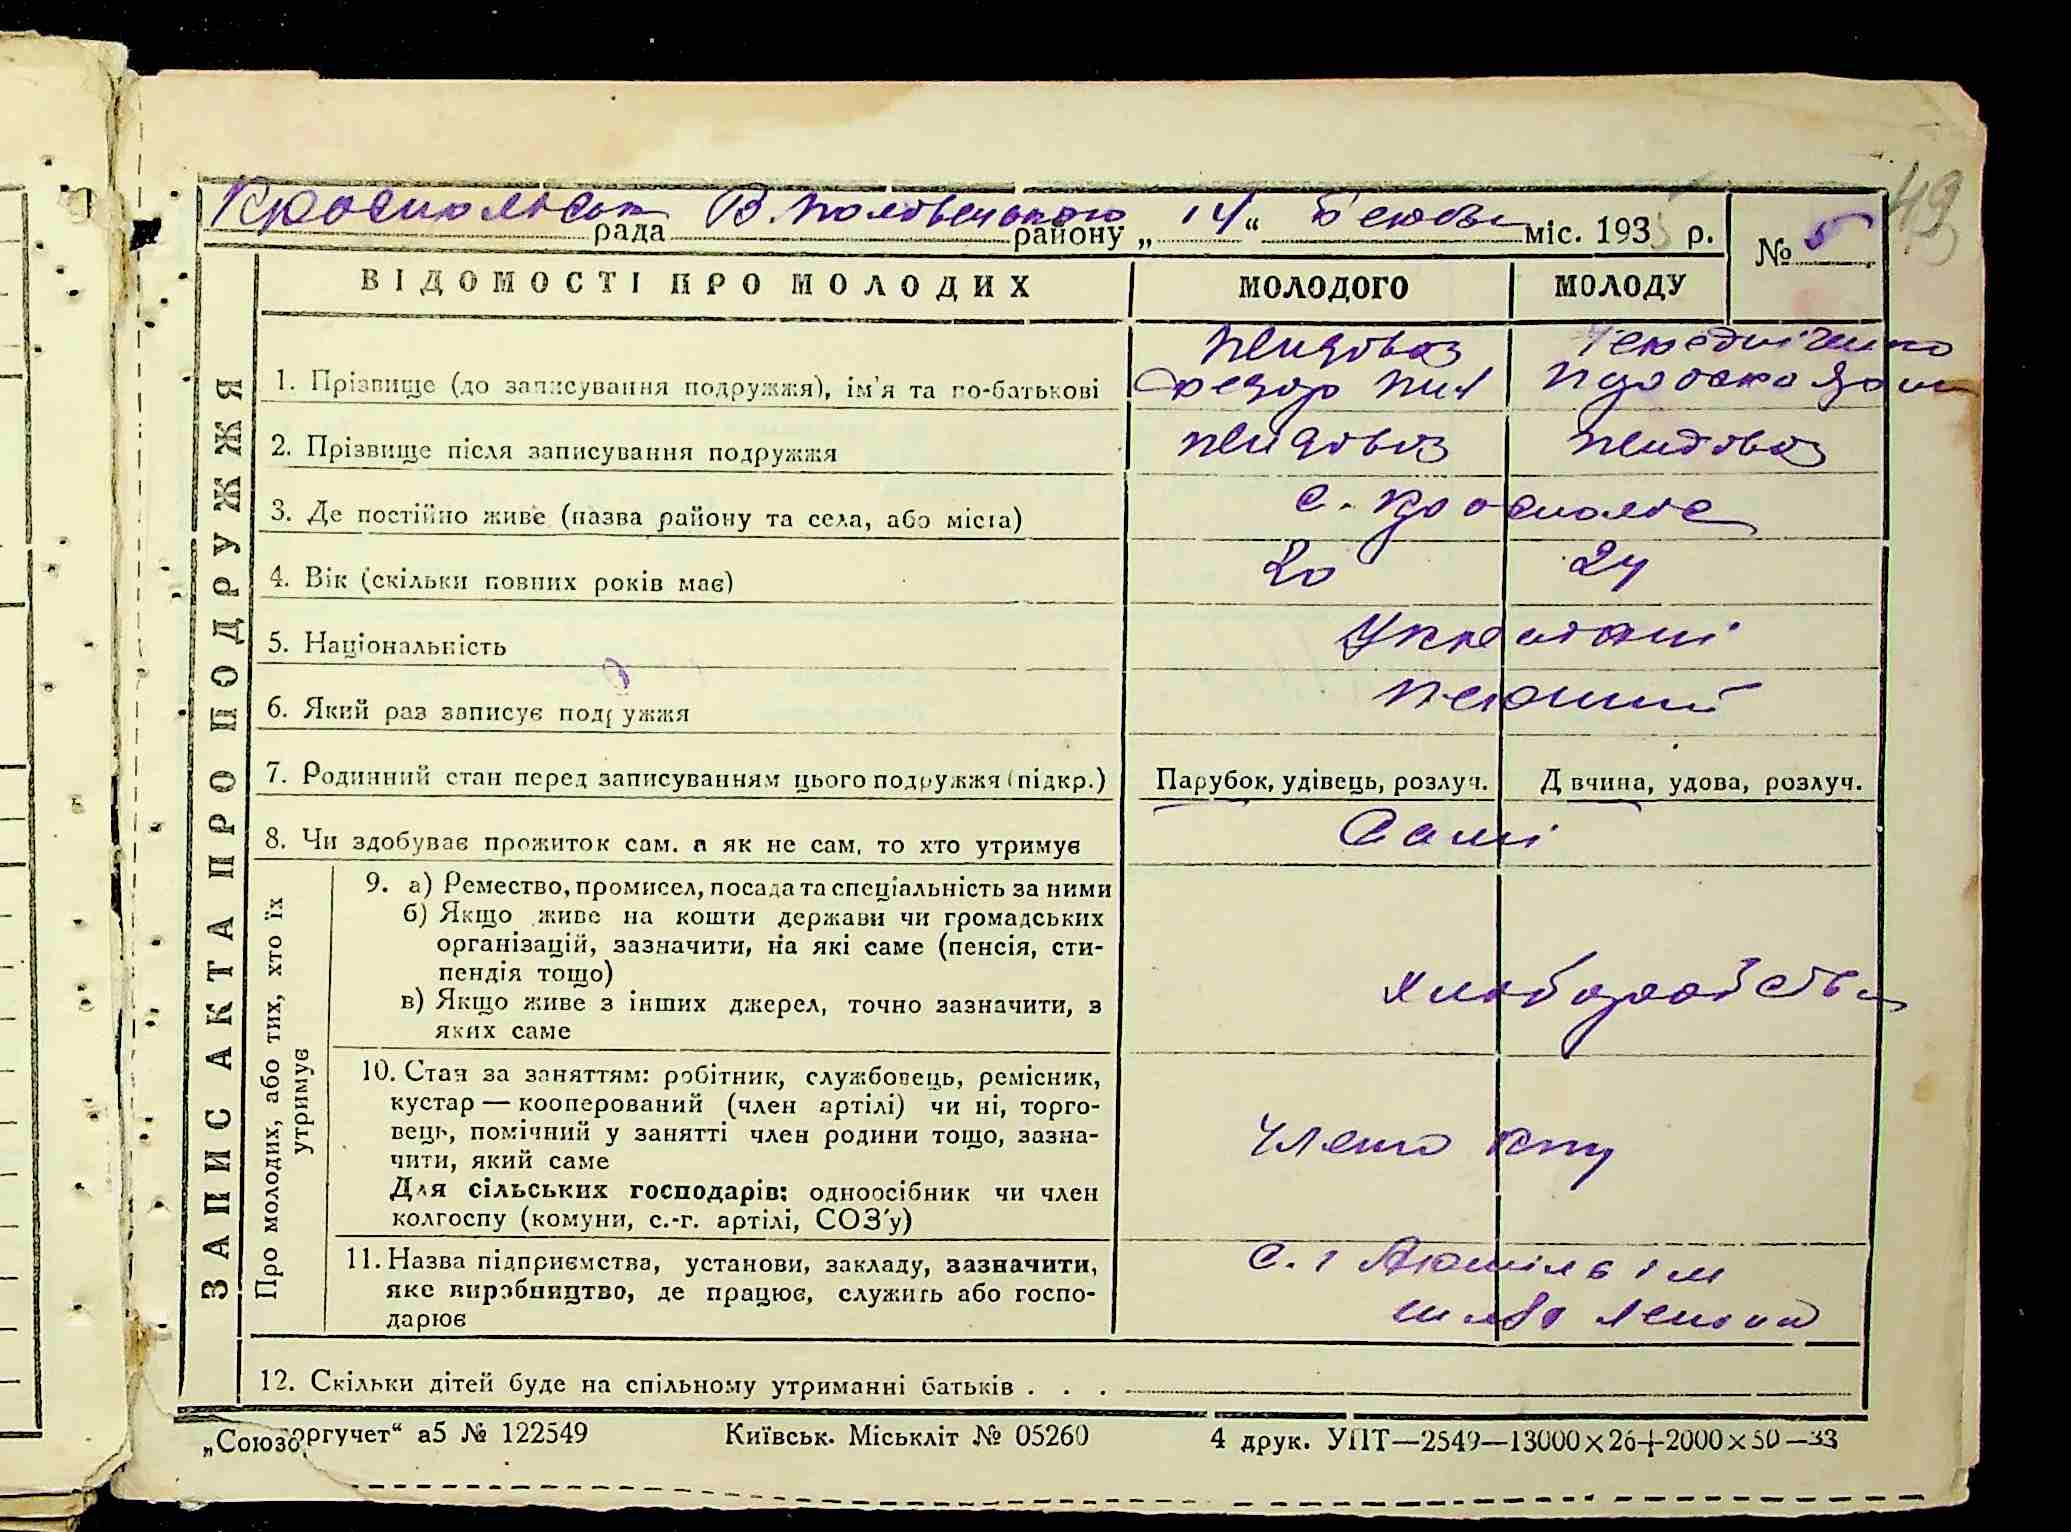 49
Краснопільськ рада В. Половецького району „14“ Березня міс. 1935 р. № 5
ЗАПИС АКТА ПРО ПОДРУЖЖЯ
ВІДОМОСТІ ПРО МОЛОДИХ МОЛОДОГО МОЛОДУ
1. Прізвище (до записування подружжя), ім'я та по-батькові
Федор
2. Прізвище після записування подружжя
3. Де постійно живе (назва району та села, або міста) с. Краснопілс
4. Вік (скільки повних років має) 20 24
5. Національність Українці
6. Який раз записує подружжя Перший
7. Родинний стан перед записуванням цього подружжя (підкр.) Парубок, удівець, розлуч. Дівчина, удова, розлуч.
8. Чи здобуває прожиток сам, а як не сам, то хто утримує Самі
Про молодих, або тих, хто їх утримує
9. а) Ремество, промисел, посада та спеціальність за ними
б) Якщо живе на кошти держави чи громадських
організацій, зазначити, на які саме (пенсія, сти-
пендія тощо)
в) Якщо живе з інших джерел, точно зазначити, з
яких саме
10. Стан за заняттям: робітник, службовець, ремісник,
кустар — кооперований (член артілі) чи ні, торго-
вець, помічний у занятті член родини тощо, зазна-
чити, який саме
Для сільських господарів: одноосібник чи член
колгоспу (комуни, с.-г. артілі, СОЗ'у)
11. Назва підприємства, установи, закладу, зазначити, с. г Артіль ім
яке виробництво, де працює, служить або госпо-
дарює
12. Скільки дітей буде на спільному утриманні батьків . . .
„Союзоргучет“ а5 № 122549 Київськ. Міськліт № 05260 4 друк. УПТ—2549—13000×26+2000×50—33